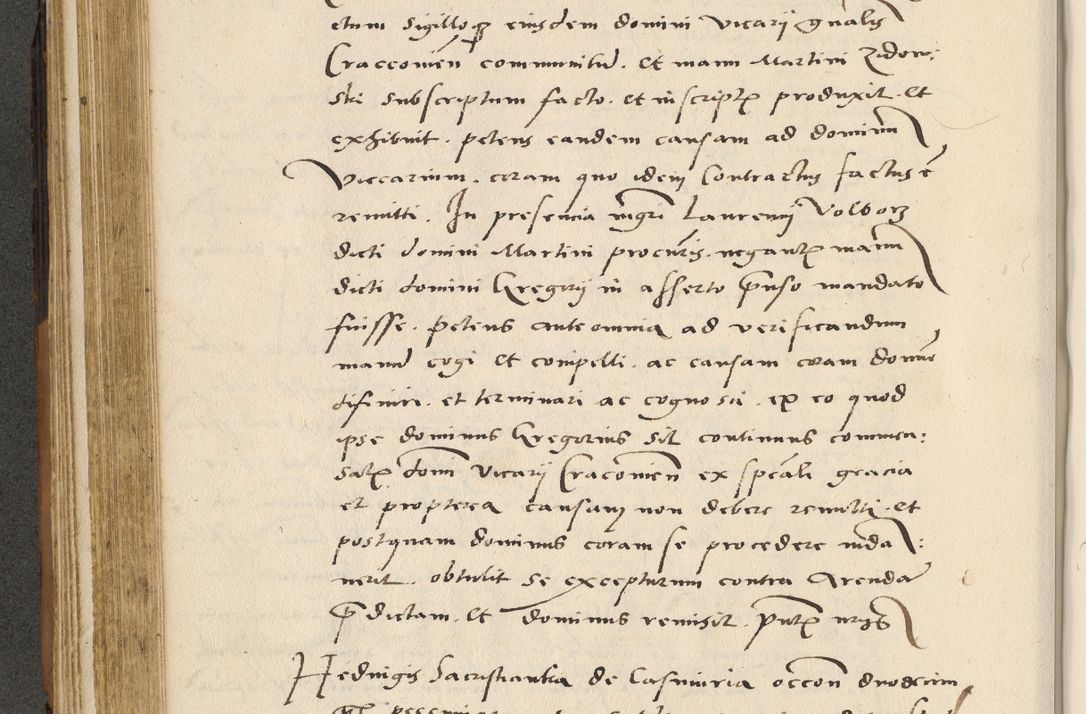 ctum sigilloq3 eiusdem domini vicarij gnalis
Craccouien communitu. et manu Martini Zidow:
ski subscriptum facto. et in scriptis produxit. et
exhibuit. petens eandem causam ad dominum
Viccarium. coram quo idem Contractus factus e
remitti. In presencia mgri Laurencij Volborz
dicti domini Martini procuris. negantis manu
dicti domini Gregorij in asserto penso mandato
fuisse. petens ante omnia ad verificandum
manu cogi et compelli. ac causam coram domno
difiniri. et terminari ac cognosci. ex eo quod
ipse dominus Gregorius sit continuus commen:
salis domi vicarij Craccouien ex speali gracia
et propterea causam non debere remitti. et
postquam dominus coram se procedere inda:
uerit. obtulit se excepturum contra Arenda
predictam. et dominus remisit. pntis
Hedwigis Sacristianka de Casmiria occon duodecim